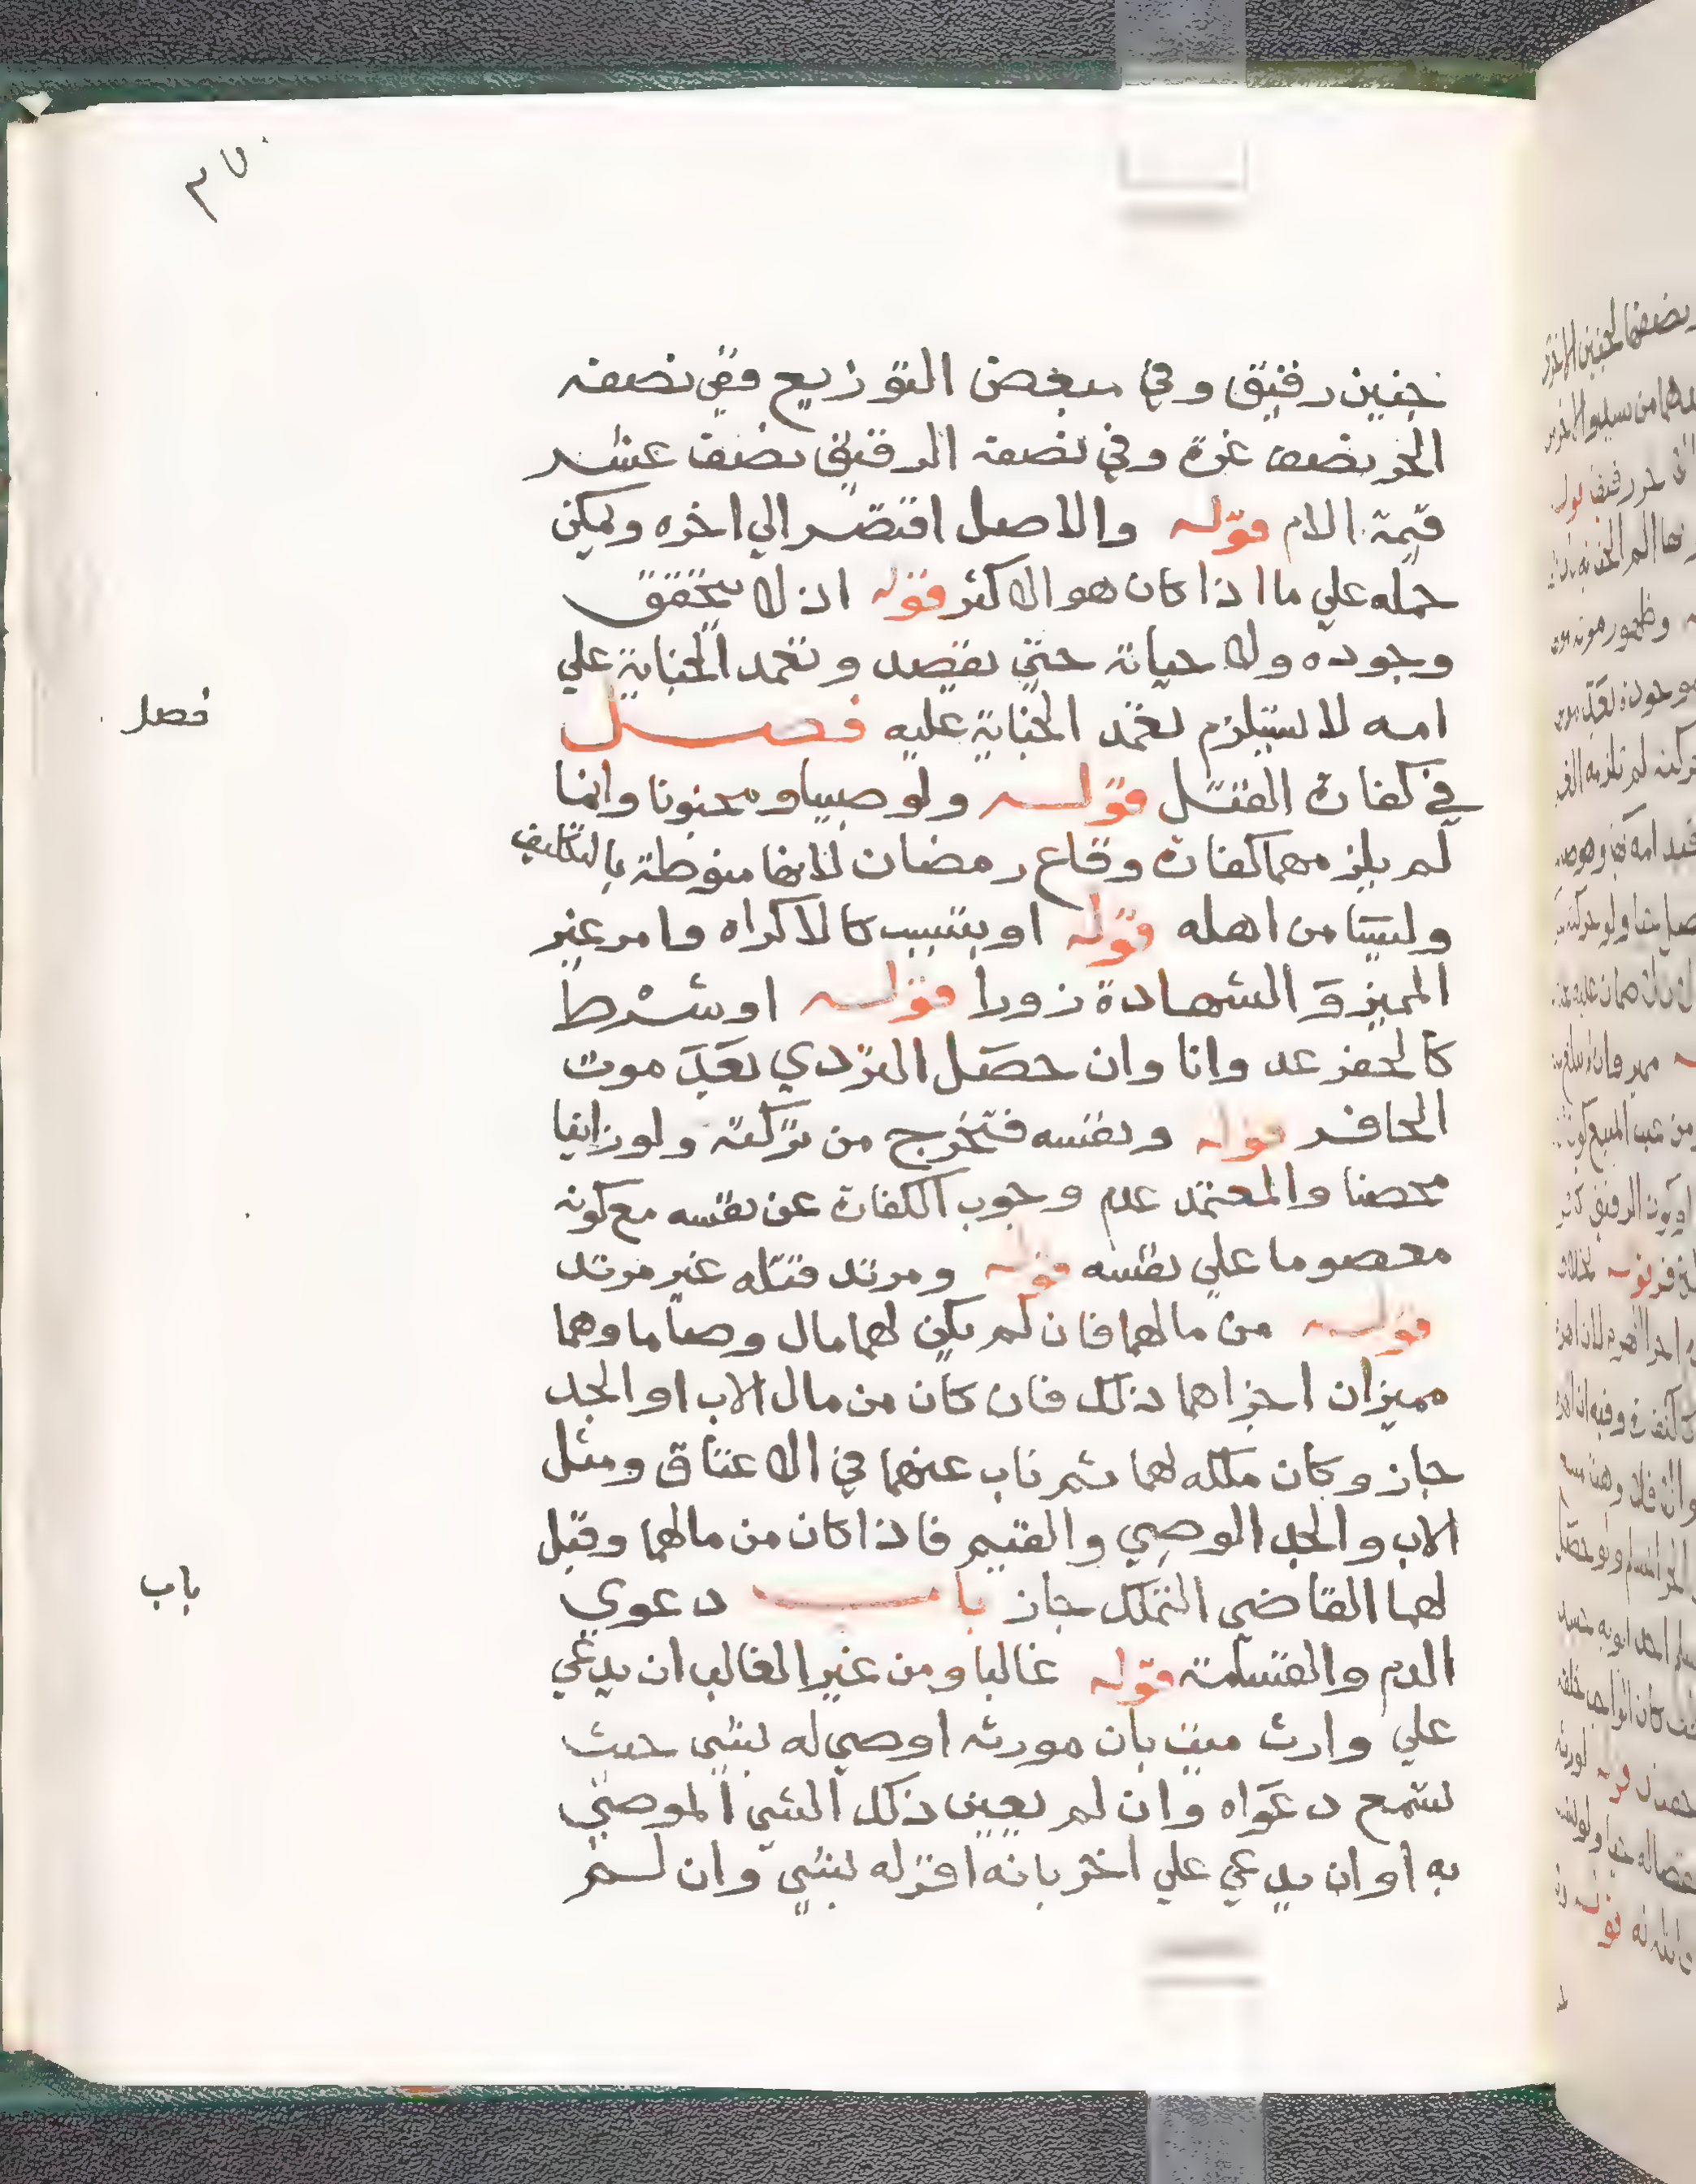 جنين رقيق وفي مبعض التوزيع ففي نصفه
الحر نصف غرة وفي نصفه الرقيق نصف عشر
قيمة الام قوله والاصل اقتصر الي اخره ويمكن
حمله علي ما اذا كان هو الاكثر قوله اذ لا يتحقق
وجوده ولا حياته حتي يقصد وتعمد الجناية علي
امه لا يستلزم تعمد الجناية عليه فصل
في كفارة القتل قوله ولو صبيا ومجنونا وانما
لم يلزمهما كفارة وقاع رمضان لانها منوطة بالتكليف
وليسا من اهله قوله او بتسبب كالاكراه وامر غير
المميز و الشهادة زورا قوله او شرط
كالحفر عدوانا وان حصل التردي بعد موت
الحافر قوله ونفسه فتخرج من تركته ولو زانيا
محصنا والمعتمد عدم وجوب الكفارة عن نفسه مع كونه
معصوما علي نفسه قوله ومرتد قتله غير مرتد
قوله من مالهما فان لم يكن لهما مال وصاما وهما
مميزان اجزاهما ذلك فان كان من مال الاب او الجد
جاز وكان ملكه لهما ثم ناب عنهما في الاعتاق ومثل
الاب والجد الوصي والقيم فاذا كان من مالهما وقبل
لهما القاضي التملك جاز باب دعوي
الدم والقسامة قوله غالبا ومن غير الغالب ان يدعي
علي وارث ميت بان مورثه اوصي له بشي حيث
تسمع دعواه وان لم يعين ذلك الشي الموصي
به او ان يدعي علي اخر بانه اقر له بشي وان لم
فصل
باب